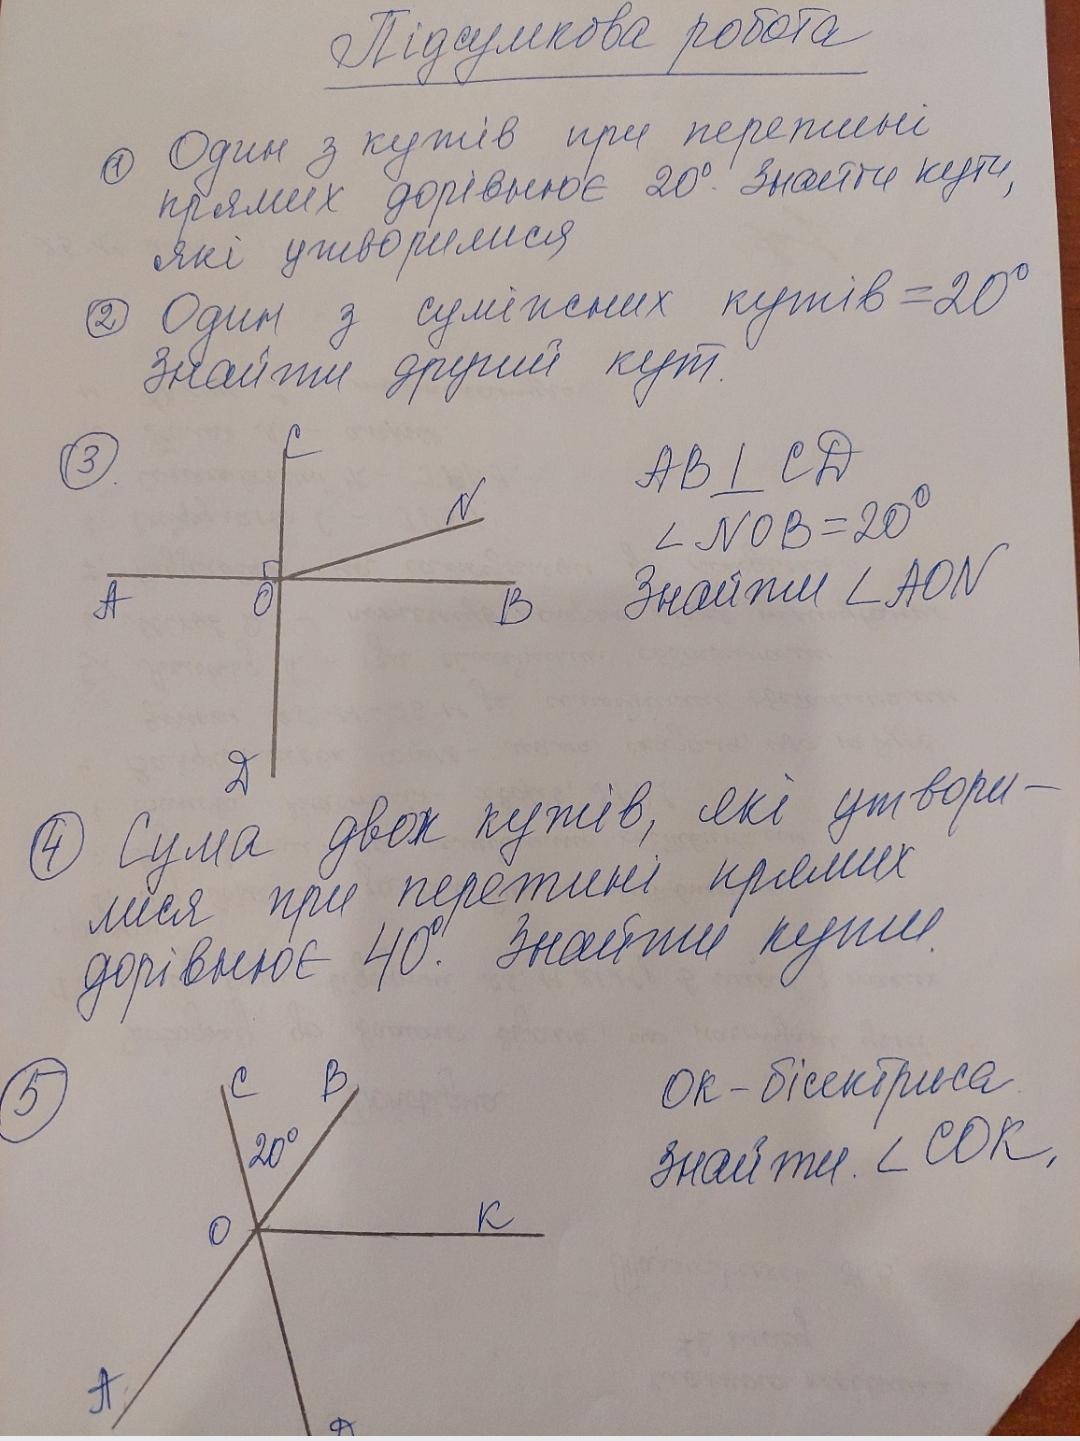 Підсумкова робота
① Один з кутів при перетині
прямих дорівнює 20°. Знайти кути,
які утворилися
② Один з суміжних кутів = 20°
Знайти другий кут.
③.
C
N
A
O
B
D
AB ⊥ CD
∠NOB = 20°
Знайти ∠AON
④ Сума двох кутів, які утвори-
лися при перетині прямих
дорівнює 40°. Знайти кути.
⑤
C
B
20°
O
K
A
OK - бісектриса
Знайти. ∠COK,